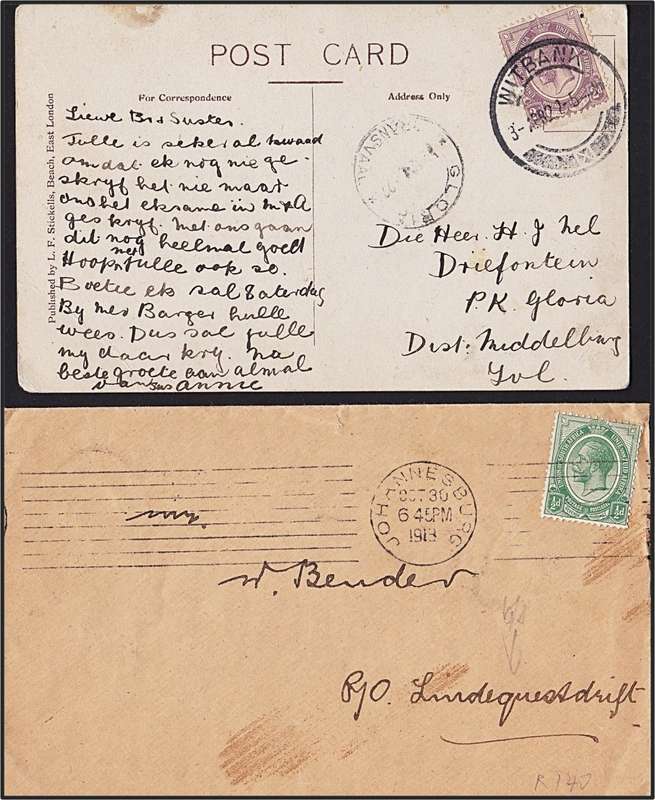 POST CARD
For Correspondence
Address Only
Published by L. F. Stickells, Beach, East London
Liewe Br & Suster.
Julle is sekeral kwaad
omdat ek nog nie ge-
skryf het nie maar
ons het eksame in
geskryf. Met ons gaan
dit nog heelmal goed
Hoop met Julle ook so.
Boetie ek sal Saterdag
By Mev Barger hulle
wees. Dus sal julle
my daar kry. Na
beste groete aan almal
van sus Annie
WITBANK
GLORIA
TRANSVAAL
Die Heer H. J Nel
Driefontein
P.K. Gloria
Dist: Middelburg
Tvl.
JOHANNESBURG
OCT 30
6 45PM
1913
½d ½d
W. Bender
P/O. Lindequestdrift
R140